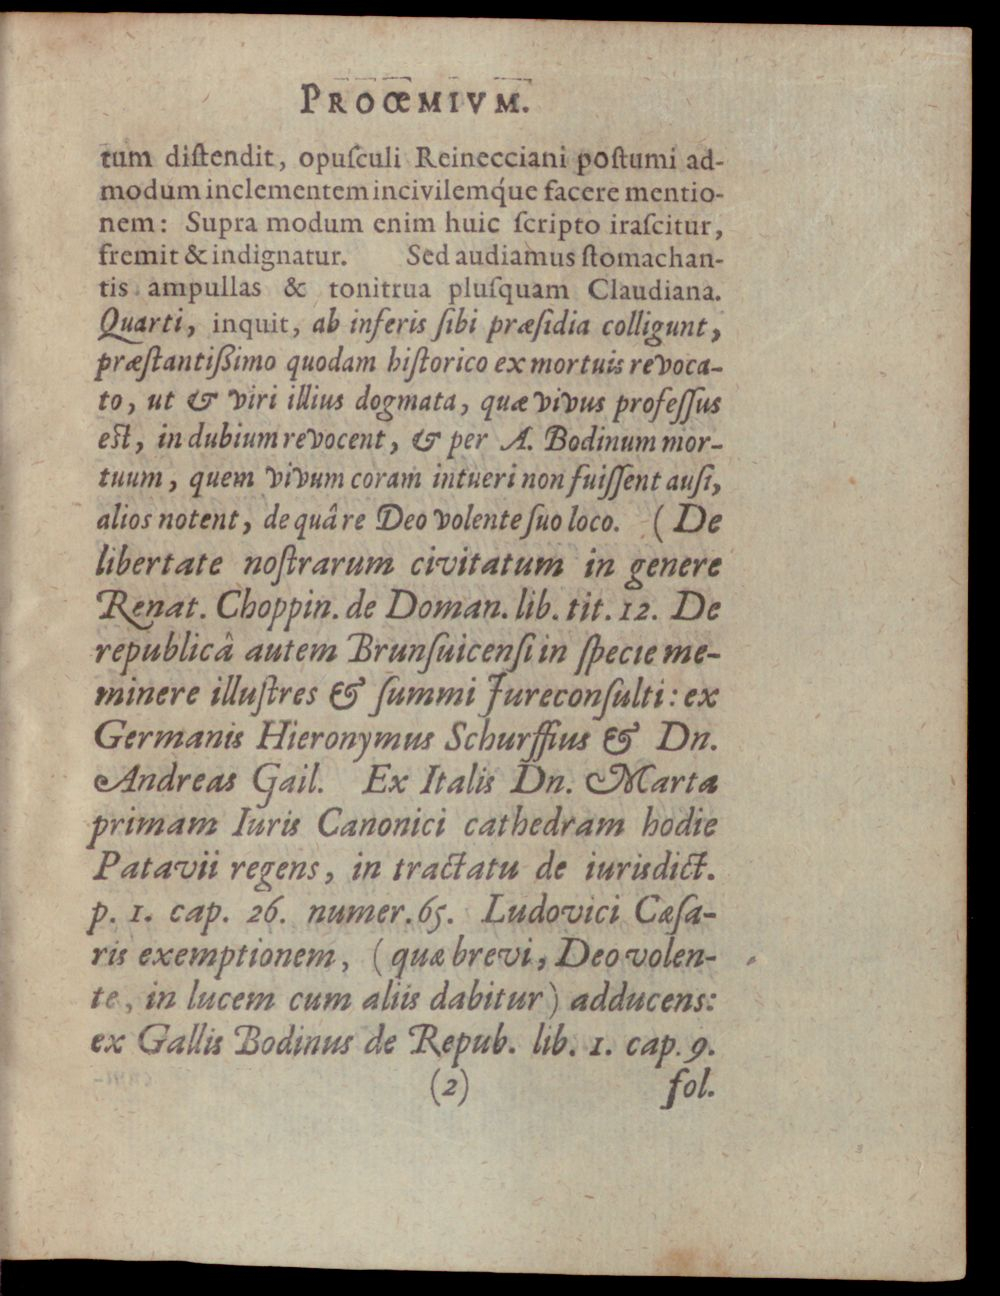 PROŒMIVM.
tum diſtendit, opuſculi Reinecciani poſtumi ad-
modum inclementem incivilemq́ue facere mentio-
nem: Supra modum enim huic ſcripto iraſcitur,
fremit & indignatur. Sed audiamus ſtomachan-
tis ampullas & tonitrua pluſquam Claudiana.
Quarti, inquit, ab inferis ſibi præſidia colligunt,
præſtantißimo quodam hiſtorico ex mortuis revoca-
to, ut & viri illius dogmata, quæ vivus profeſſus
eſt, in dubium revocent, & per A. Bodinum mor-
tuum, quem vivum coram intueri non fuiſſent auſi,
alios notent, de quâ re Deo volente ſuo loco. (De
libertate noſtrarum civitatum in genere
Renat. Choppin. de Doman. lib. tit. 12. De
republicâ autem Brunſuicenſi in ſpecie me-
minere illuſtres & ſummi Jureconſulti: ex
Germanis Hieronymus Schurffius & Dn.
Andreas Gail. Ex Italis Dn. Marta
primam Iuris Canonici cathedram hodie
Patavii regens, in tractatu de iurisdict.
p. 1. cap. 26. numer. 65. Ludovici Cæſa-
ris exemptionem, (quæ brevi, Deo volen-
te, in lucem cum aliis dabitur) adducens:
ex Gallis Bodinus de Repub. lib. 1. cap. 9.
(2) fol.